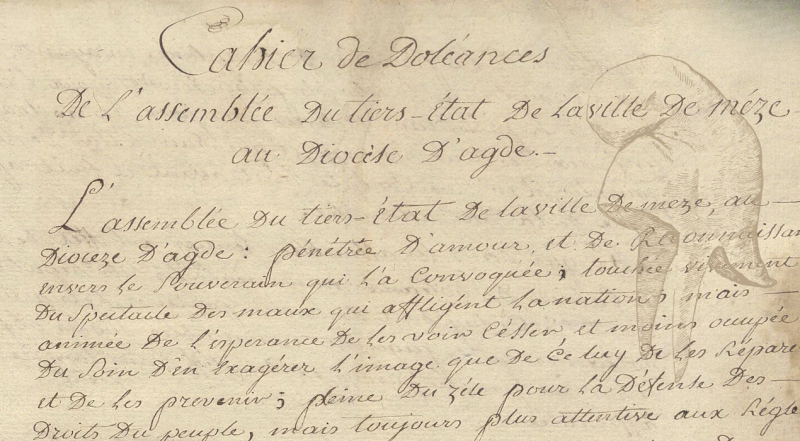 Cahier de Doléances
De L'assemblée Du tiers-État De la ville De méze-
au Diocèse D'agde.-
L'assemblée Du tiers-État De la ville De meze, au-
Dioceze D'agde: pénétrée D'amour et De Reconnaissan
envers le Souverain qui L'a Convoquée; touchée vivement
Du Spectacle Des maux qui affligent La nation; mais-
animée De L'esperance De Les voir Césser et moins occupée
Du Soin D'en exagérer L'image que De Celuy De Les Répare
et De Les prevenir; pleine Du zéle pour La Défense Des-
Droits Du peuple, mais toujours plus attentive aux Régle